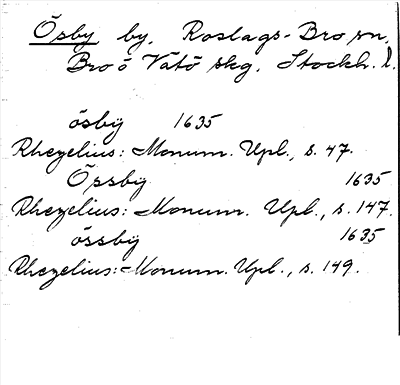 Ösby by, Roslags-Bro sn,
Bro o Vätö skg, Stockh. l.
ösbÿ 1635
Rhezelius: Monum. Upl., s. 47.
Össbÿ 1635
Rhezelius: Monum. Upl., s. 147.
össbÿ 1635
Rhezelius: Monum. Upl., s. 149.